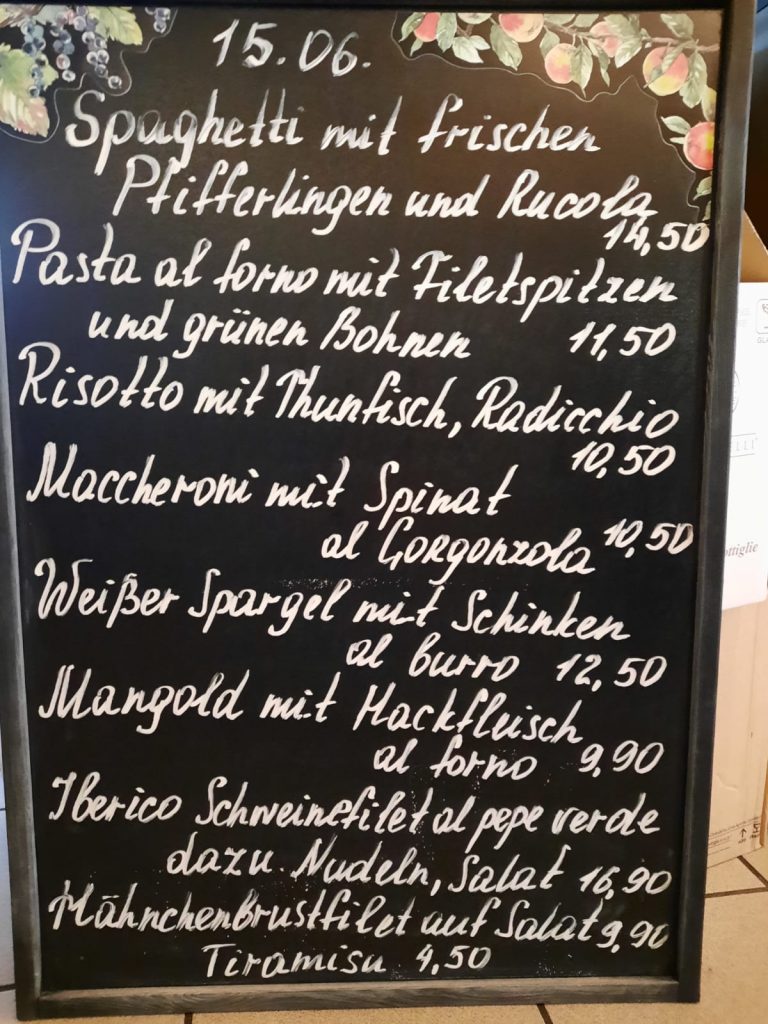 15.06.
Spaghetti mit frischen
Pfifferlingen und Rucola
14,50
Pasta al forno mit Filetspitzen
und grünen Bohnen 11,50
Risotto mit Thunfisch, Radicchio
10,50
Maccheroni mit Spinat
al Gorgonzola 10,50
Weißer Spargel mit Schinken
al burro 12,50
Mangold mit Hackfleisch
al forno 9,90
Iberico Schweinefilet al pepe verde
dazu Nudeln, Salat 16,90
Hähnchenbrustfilet auf Salat 9,90
Tiramisu 4,50